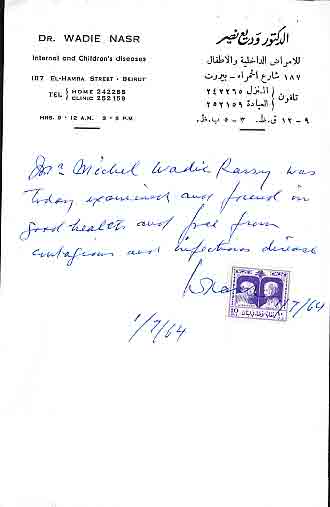 DR. WADIE NASR
الدكتور وديع نصر
Internal and Children's diseases
للامراض الداخلية والاطفال
187 EL-HAMRA STREET - BEIRUT
١٨٧ شارع الحمراء - بيروت
TEL { HOME 242265
CLINIC 252159
تلفون { المنزل ٢٤٢٢٦٥
العيادة ٢٥٢١٥٩
HRS. 9 - 12 A.M. 3 - 5 P.M.
٩ - ١٢ ق.ظ. ٣ - ٥ ب.ظ.
Mr. Michel Wadie Rassy was
today examined and found in
good health and free from
contagious and infectious disease
1/7/64
1/7/64